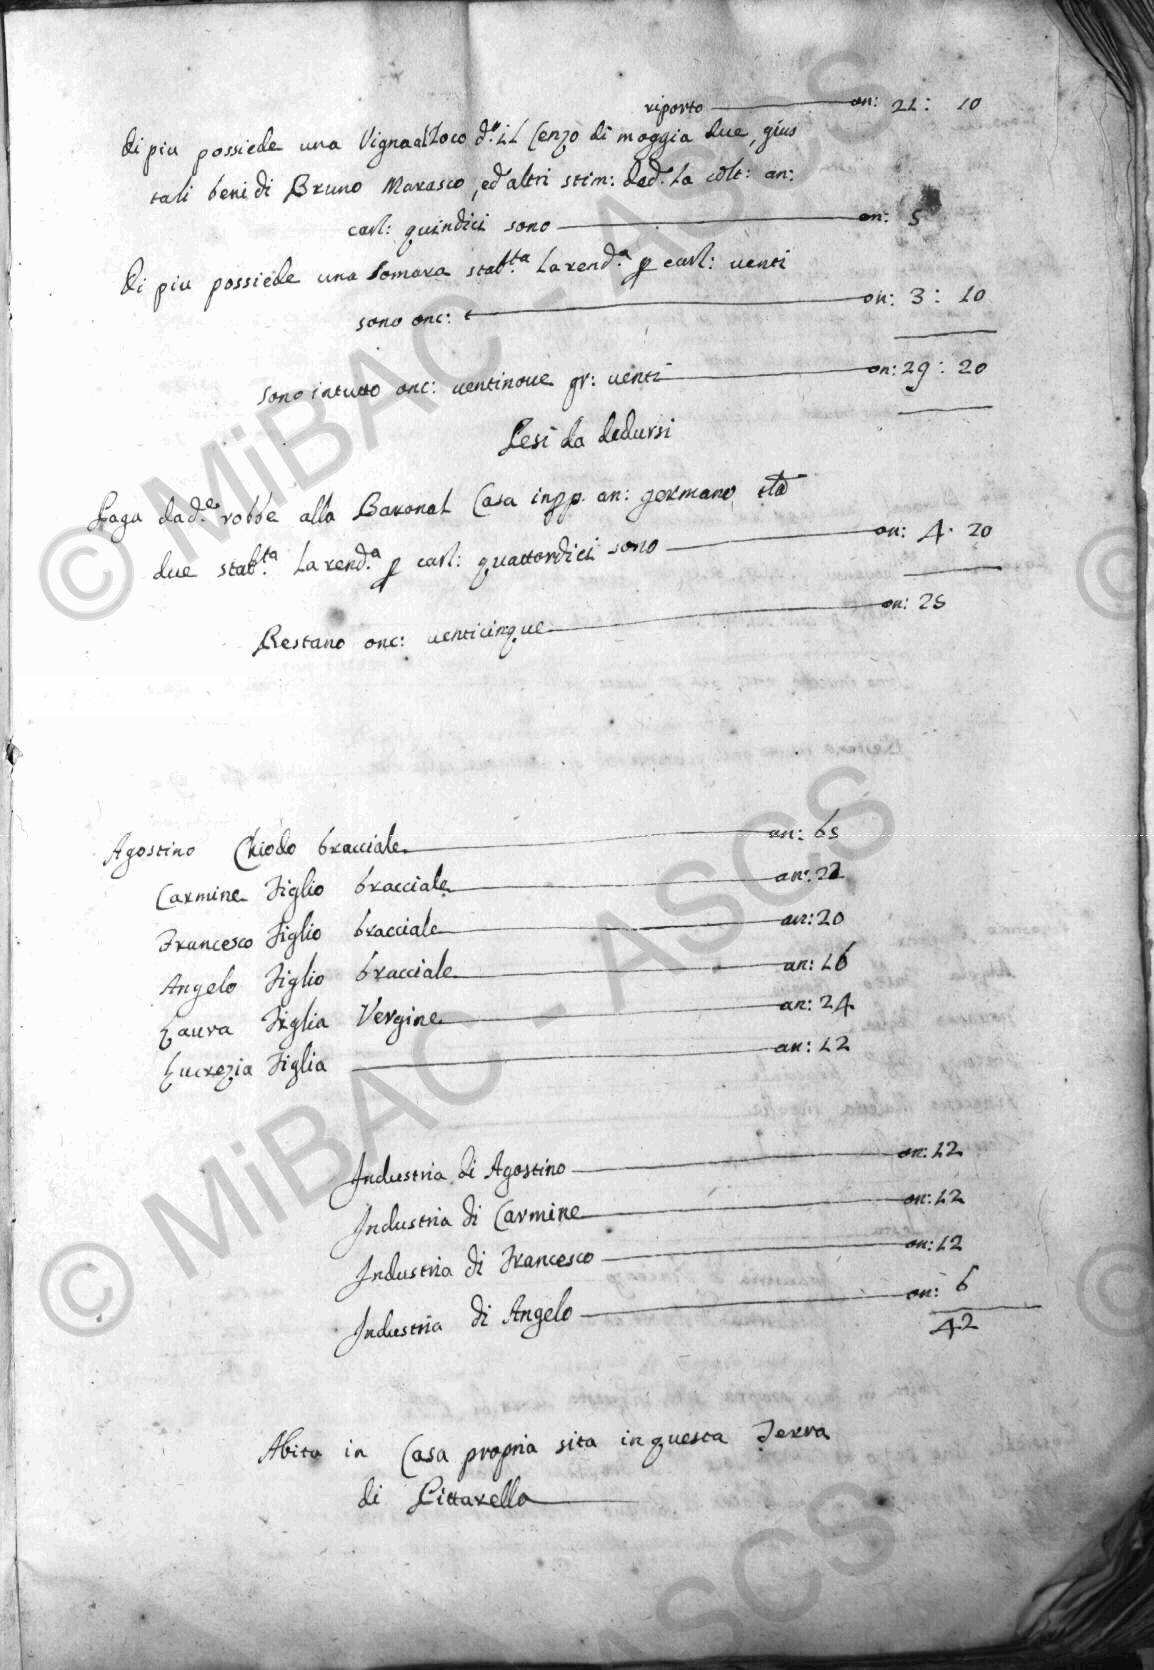 riporto on: 21: 10
di piu possiede una Vigna al Loco d.º il Cenzo di moggia due, gius
tali beni di Bruno Marasco, ed altri stim: dad. la colt: an:
carl: quindici sono on: 5
di piu possiede una Somara stab.ta la rend.a p carl: venti
sono onc: on: 3: 10
sono in tutto onc: ventinove gr: venti on: 29: 20
Pesi da dedursi
Paga dad.e robbe alla Baronal Casa an: germano
due stab.ta la rend.a p carl: quattordici sono on: 4. 20
Restano onc: venticinque on: 25
Agostino Chiodo bracciale an: 65
Carmine Figlio bracciale an: 22
Francesco Figlio bracciale an: 20
Angelo Figlio bracciale an: 16
Laura Figlia Vergine an: 24
Lucrezia Figlia an: 12
Industria di Agostino on: 12
Industria di Carmine on: 12
Industria di Francesco on: 12
Industria di Angelo on: 6
42
Abita in Casa propria sita in questa Terra
di Pittarella
© MiBAC - ASCS
© MiBAC - ASCS
ASCS